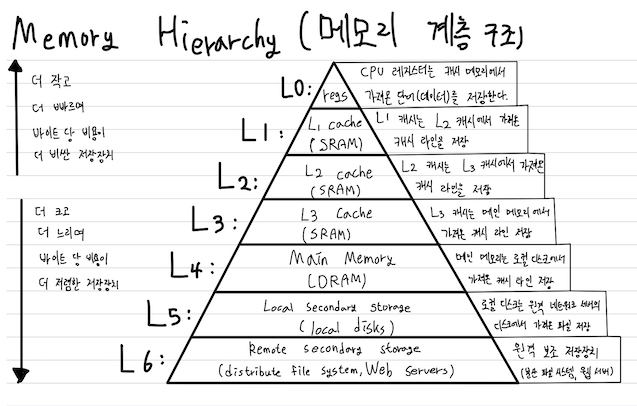 Memory Hierarchy (메모리 계층 구조)
더 작고
더 빠르며
바이트 당 비용이
더 비싼 저장장치
더 크고
더 느리며
바이트 당 비용이
더 저렴한 저장장치
L0:
regs
CPU 레지스터는 캐시 메모리에서
가져온 단어(데이터)를 저장한다.
L1:
L1 cache
(SRAM)
L1 캐시는 L2 캐시에서 가져온
캐시 라인을 저장
L2:
L2 cache
(SRAM)
L2 캐시는 L3 캐시에서 가져온
캐시 라인을 저장
L3:
L3 cache
(SRAM)
L3 캐시는 메인 메모리에서
가져온 캐시 라인 저장
L4:
Main Memory
(DRAM)
메인 메모리는 로컬 디스크에서
가져온 캐시 라인 저장
L5:
Local secondary storage
(local disks)
로컬 디스크는 원격 네트워크 서버의
디스크에서 가져온 파일 저장
L6:
Remote secondary storage
(distribute file system, Web servers)
원격 보조 저장장치
(분산 파일 시스템, 웹 서버)